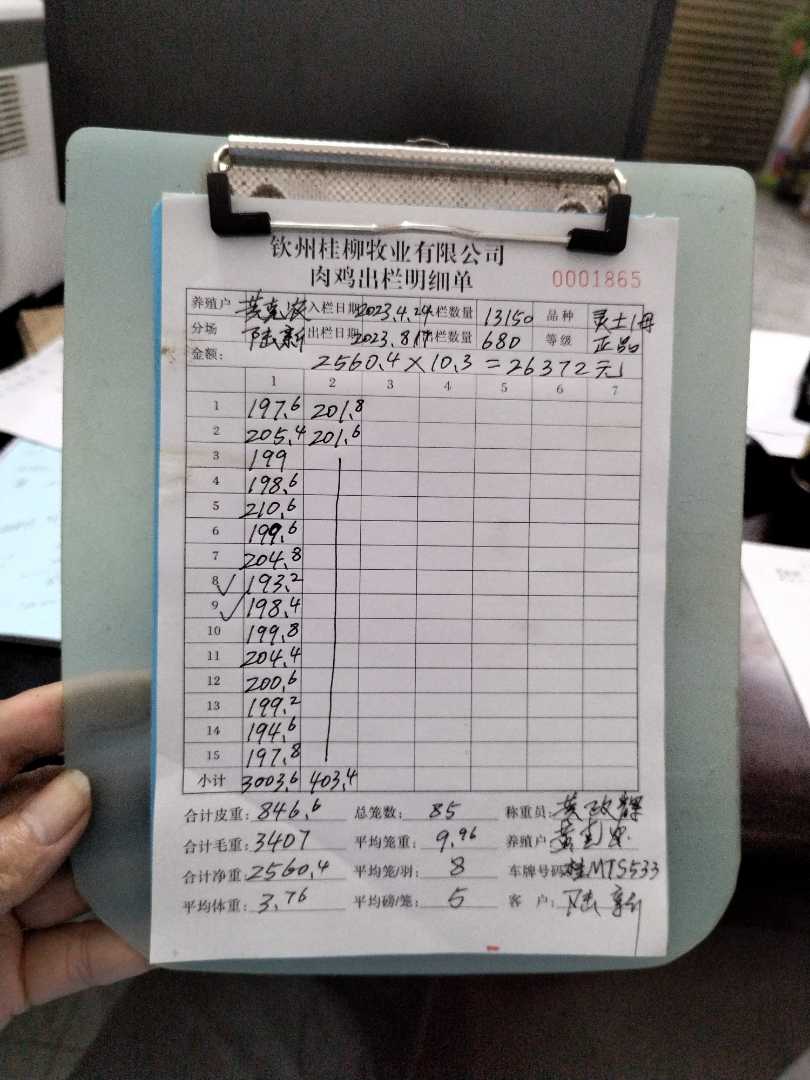 钦州桂柳牧业有限公司
肉鸡出栏明细单 0001865
养殖户 黄克农 入栏日期 2023.4.24 入栏数量 13150 品种 灵土1母
分场 陆新 出栏日期 2023.8.17 出栏数量 680 等级 正品
金额: 2560.4×10.3=26372元
1 2 3 4 5 6 7
1 197.6 201.8
2 205.4 201.6
3 199
4 198.6
5 210.6
6 199.6
7 204.8
8 193.2
9 198.4
10 199.8
11 204.4
12 200.6
13 199.2
14 194.6
15 197.8
小计 3003.6 403.4
合计皮重: 846.6 总笼数: 85 称重员: 黄政辉
合计毛重: 3407 平均笼重: 9.96 养殖户
合计净重: 2560.4 平均笼/羽: 8 车牌号码 桂MTS533
平均体重: 3.76 平均磅/笼: 5 客 户: 陆新